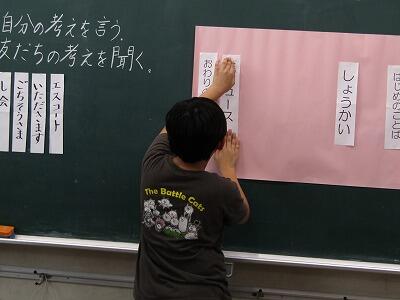 自分の考えを言う。
友だちの考えを聞く。
はじめのことば
しょうかい
ュース
おわりの
エスコート
いただきます
ごちそうさま
し会
The Battle Cats